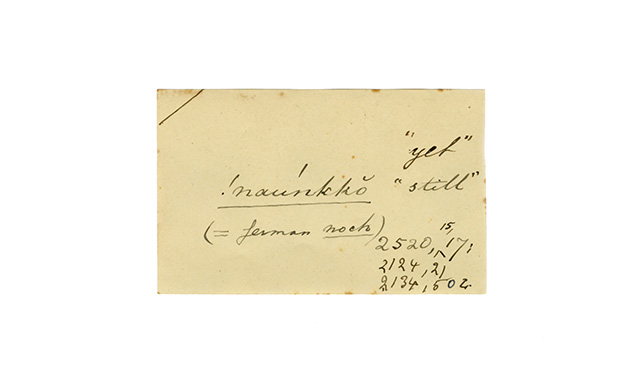 "yet"
!naúnkkŏ "still"
(= German noch)
2520, 15, 17;
2124, 21
2134, 502